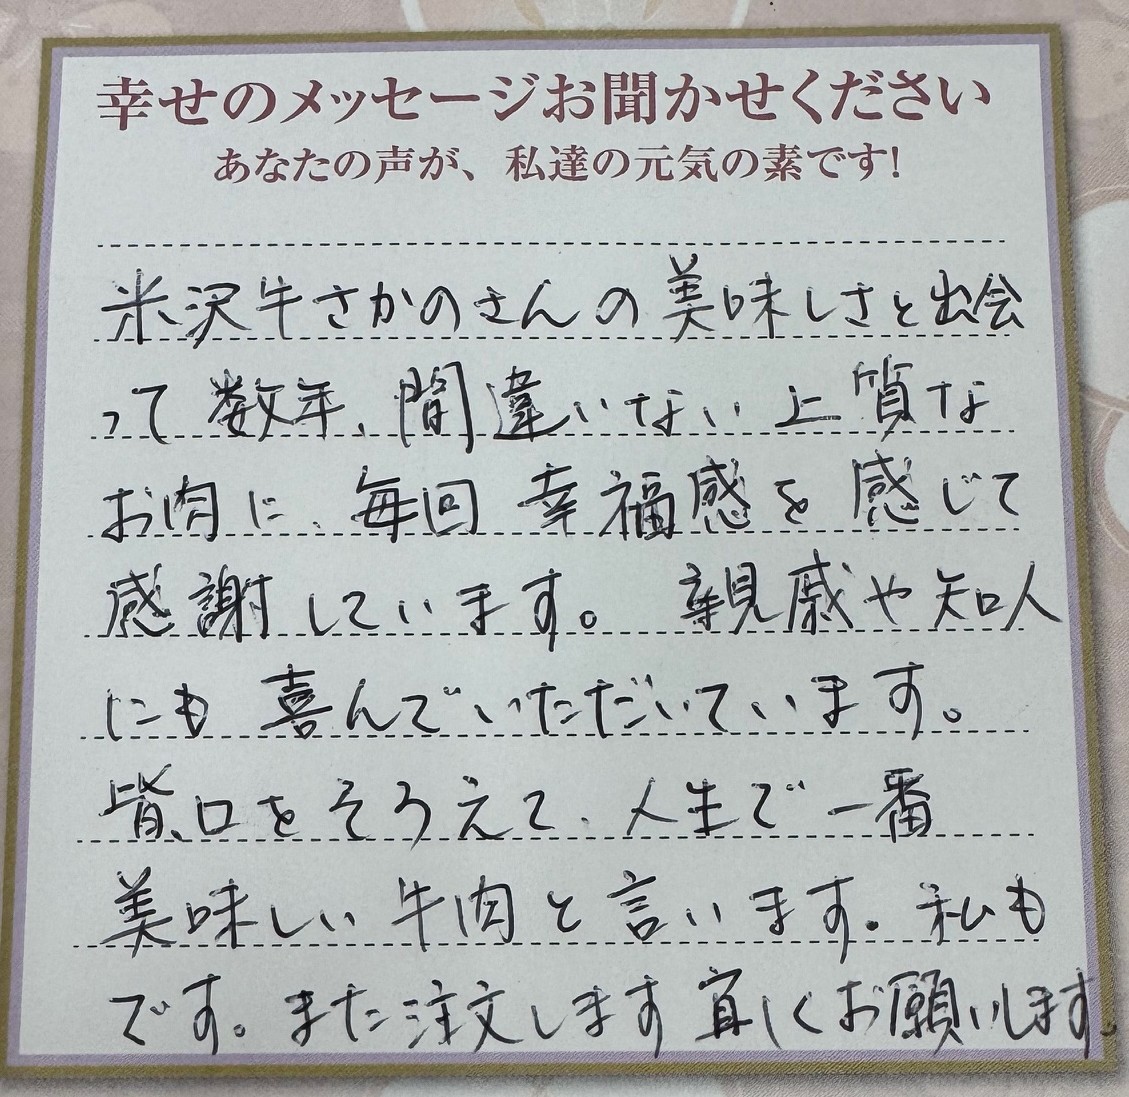 幸せのメッセージお聞かせください
あなたの声が、私達の元気の素です!
米沢牛さかのさんの美味しさと出会
って数年、間違いない上質な
お肉に、毎回幸福感を感じて
感謝しています。親戚や知人
にも喜んでいただいています。
皆、口をそろえて、人生で一番
美味しい牛肉と言います。私も
です。また注文します宜しくお願いします。